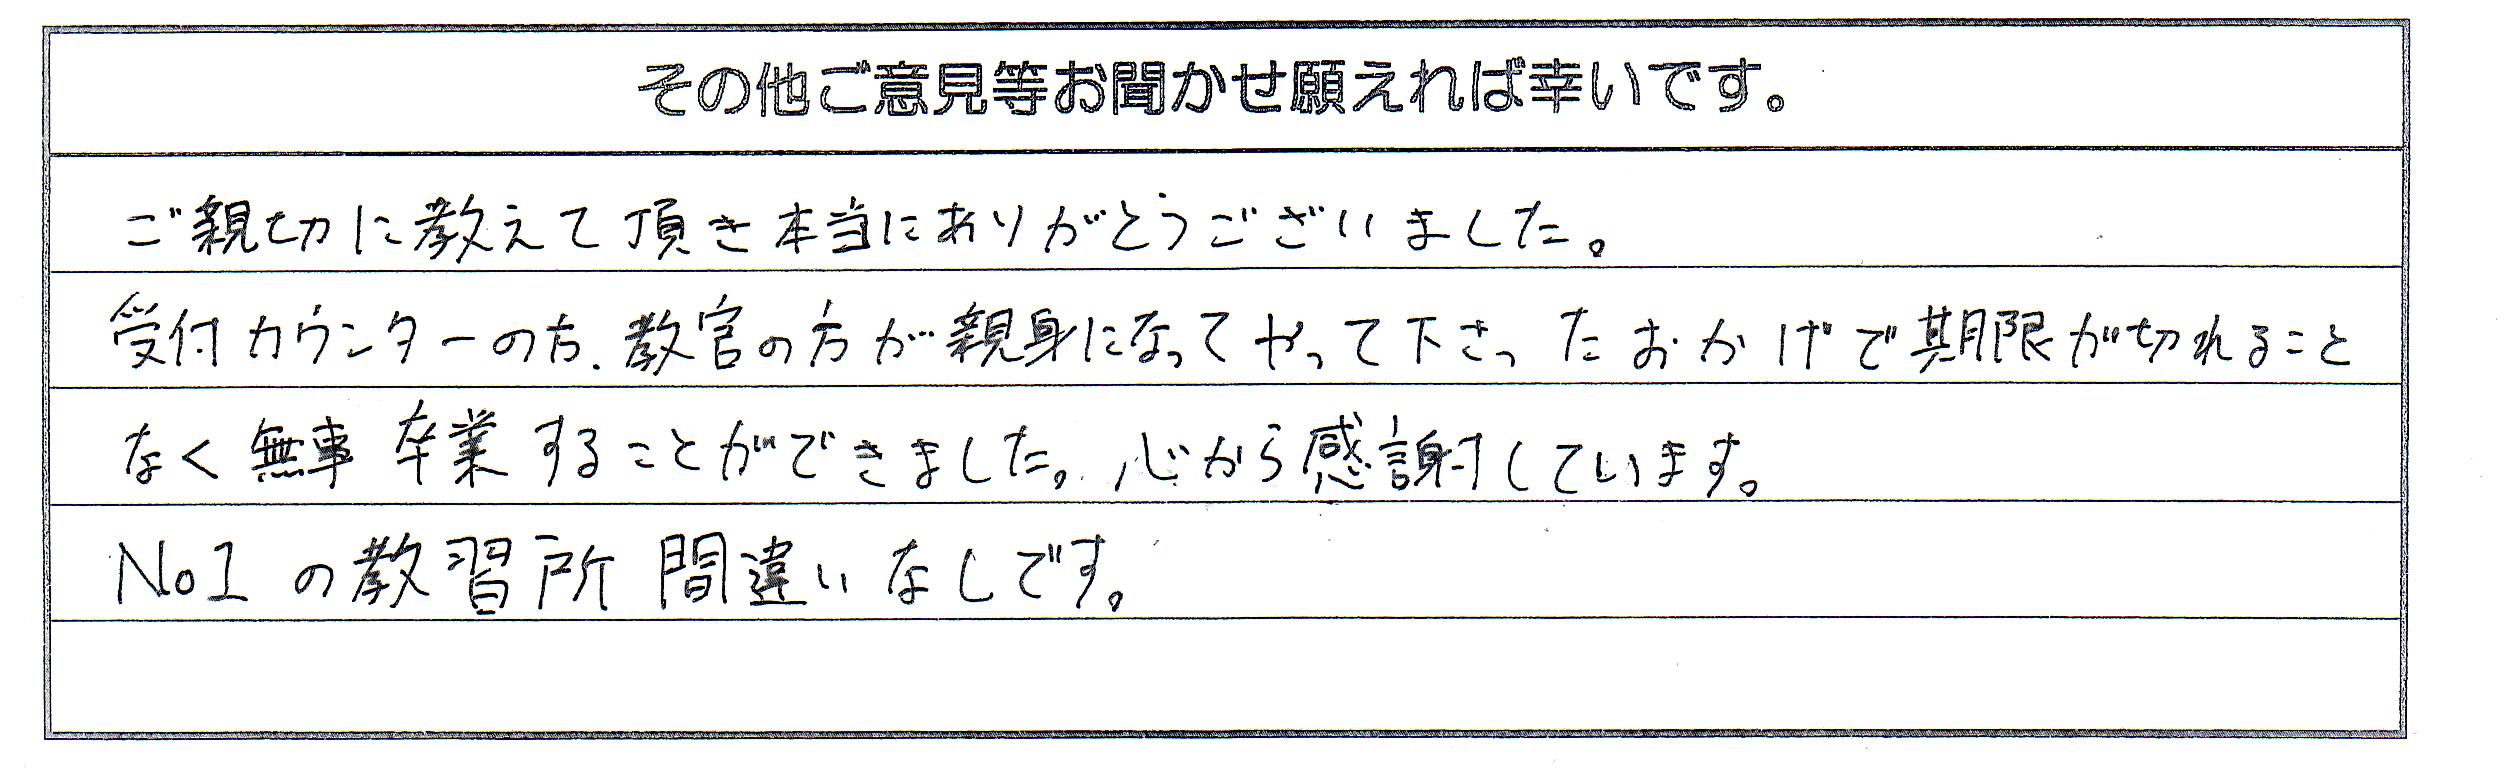 その他ご意見等お聞かせ願えれば幸いです。
ご親切に教えて頂き本当にありがとうございました。
受付カウンターの方、教官の方が親身になってやって下さったおかげで期限が切れること
なく無事卒業することができました。心から感謝しています。
No1の教習所間違いなしです。